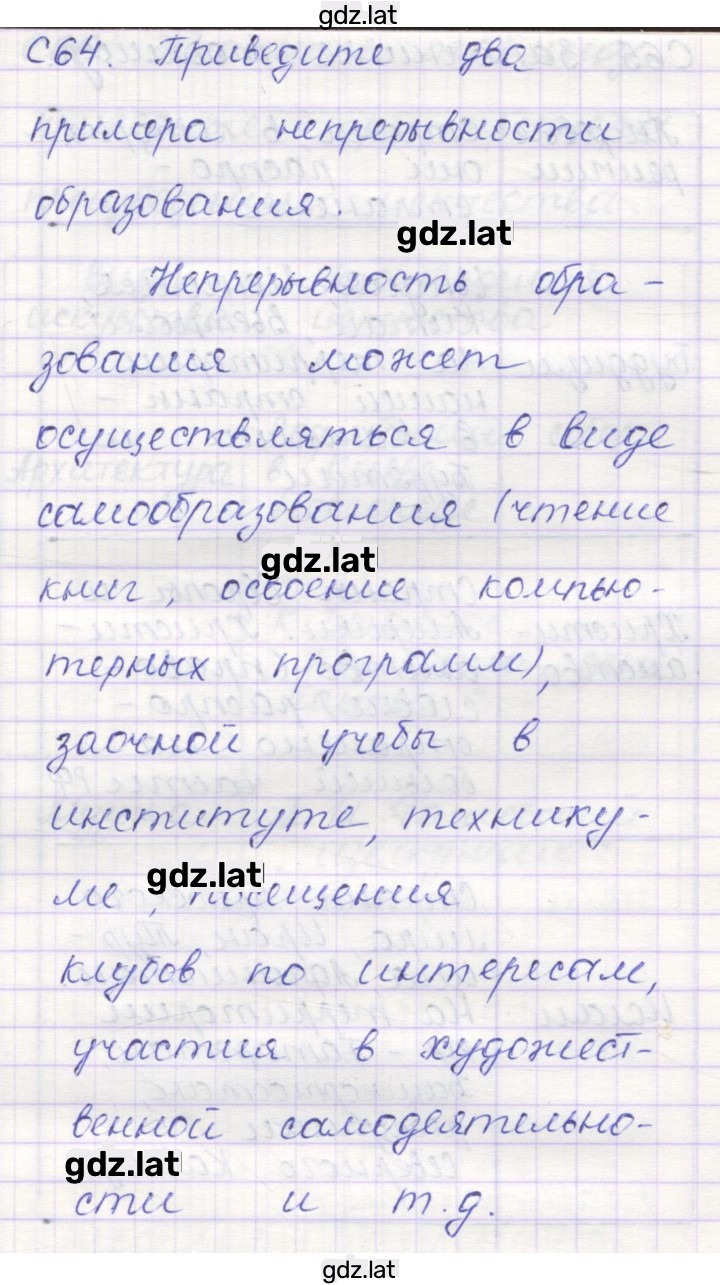 gdz.lat
С64. Приведите два
примера непрерывности
образования.
gdz.lat
Непрерывность обра-
зования может
осуществляться в виде
самообразования (чтение
gdz.lat
книг, освоение компью-
терных программ),
заочной учебы в
институте, технику-
gdz.lat
ме, посещения
клубов по интересам,
участия в художест-
венной самодеятельно-
gdz.lat
сти и т.д.
gdz.lat